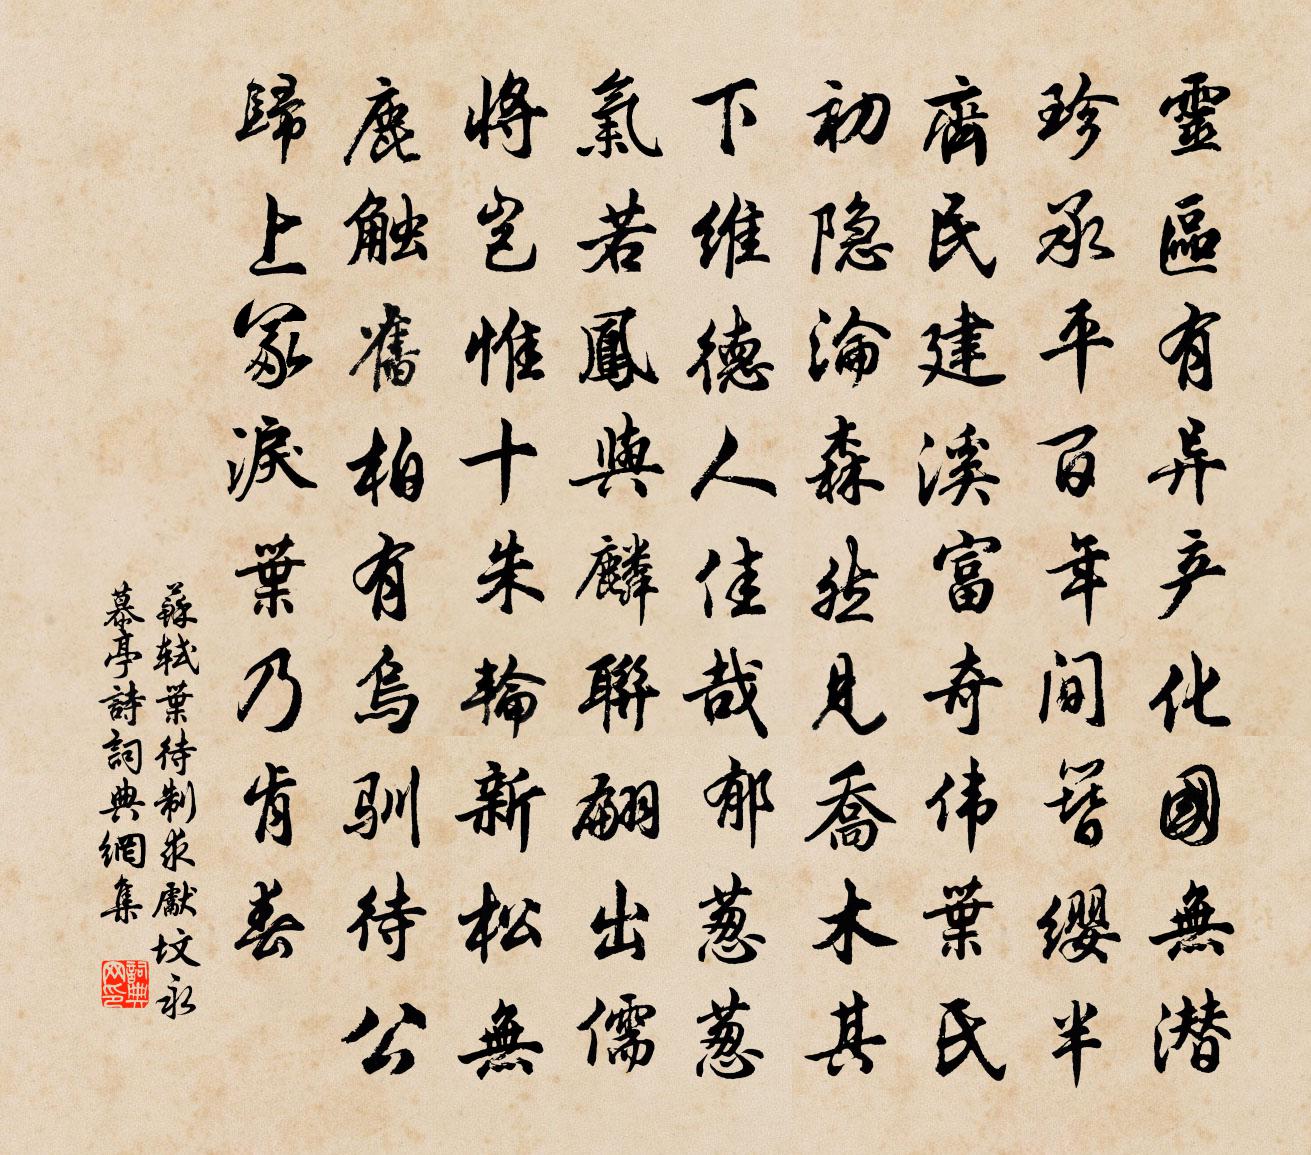 靈區有异产化國無潜
珍承平百年间簪缨半
齊民建溪富奇伟葉氏
初隐淪森然見喬木其
下维德人佳哉郁葱葱
氣若鳳與麟聯翩出儒
將岂惟十朱輪新松無
鹿触舊柏有烏驯待公
歸上冢淚葉乃肯春
蘇轼葉待制求獻坟永
慕亭詩詞典網集
詞典网印